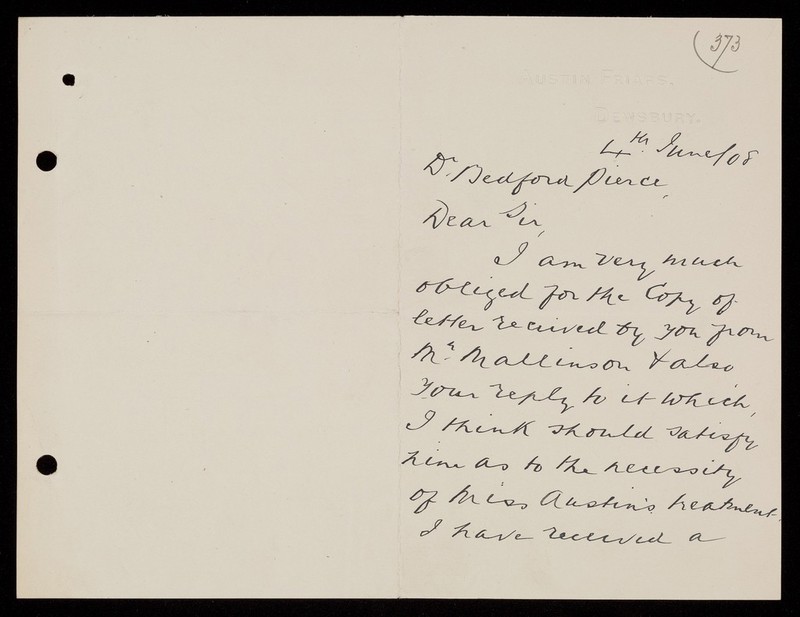 373
AUSTIN FRIARS,
DEWSBURY.
4th June/08
Dr Bedford Pierce,
Dear Sir,
I am very much
obliged for the Copy of
letter received by you from
Mr Mallinson & also
your reply to it which,
I think should satisfy
him as to the necessity
of Miss Austin's treatment.
I have received a